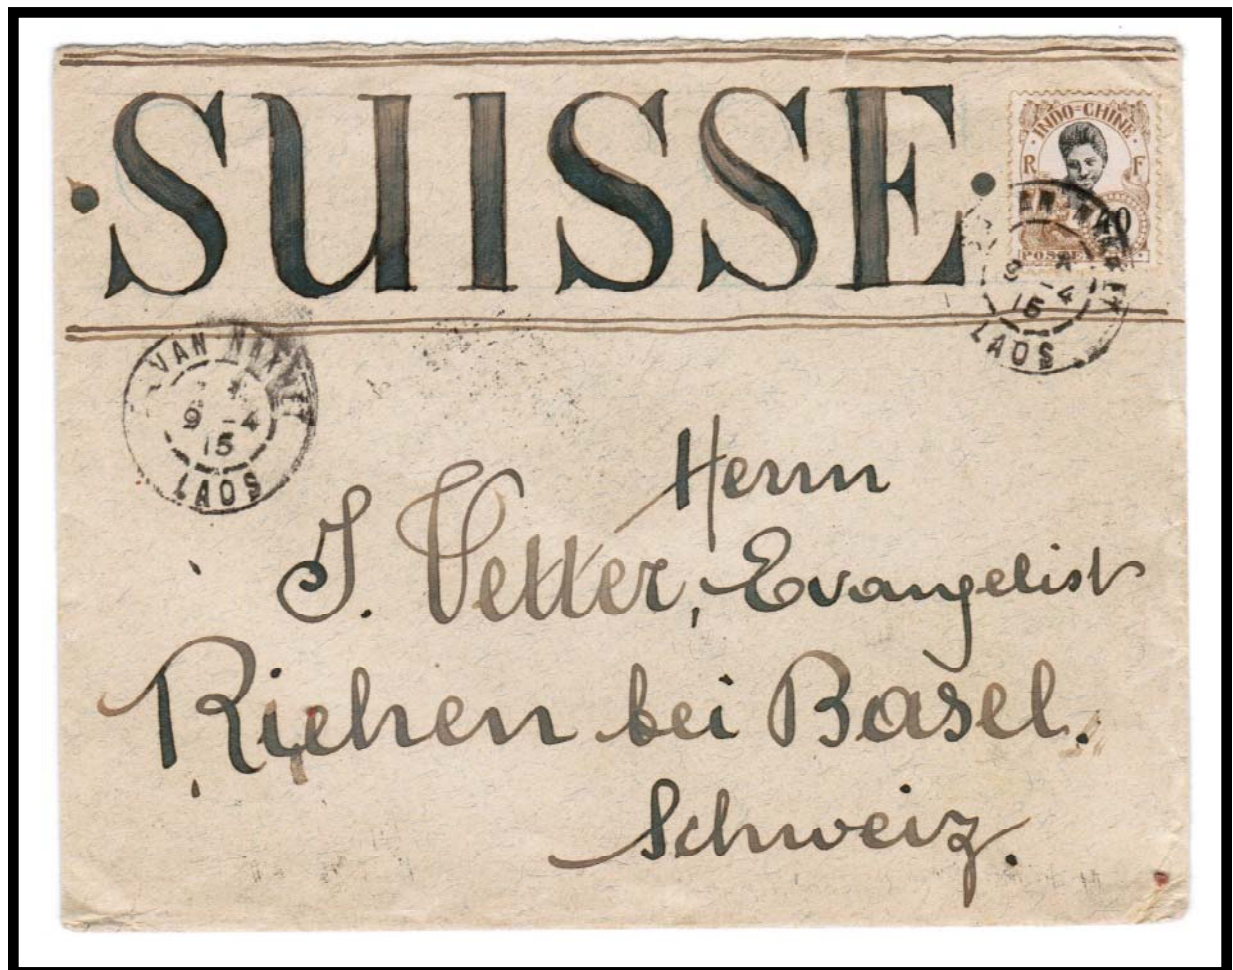 ·SUISSE·
INDO=CHINE
R F
40
POSTE
9 -4
15
LAOS
VAN NAKKET
9 -4
15
LAOS
Herrn
J. Vetter, Evangelist
Riehen bei Basel.
Schweiz.